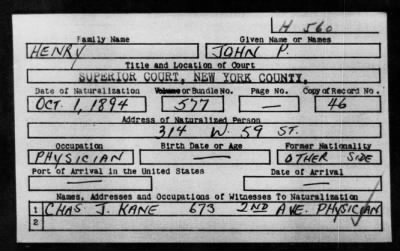 H 560
Family Name Given Name or Names
HENRY JOHN P.
Title and Location of Court
SUPERIOR COURT, NEW YORK COUNTY.
Date of Naturalization Volume or Bundle No. Page No. Copy of Record No.
OCT. 1, 1894 577 — 46
Address of Naturalized Person
314 W. 59 ST.
Occupation Birth Date or Age Former Nationality
PHYSICIAN — OTHER SIDE
Port of Arrival in the United States Date of Arrival
— —
Names, Addresses and Occupations of Witnesses To Naturalization
1 CHAS. J. KANE 673 2ND AVE. PHYSICIAN
2